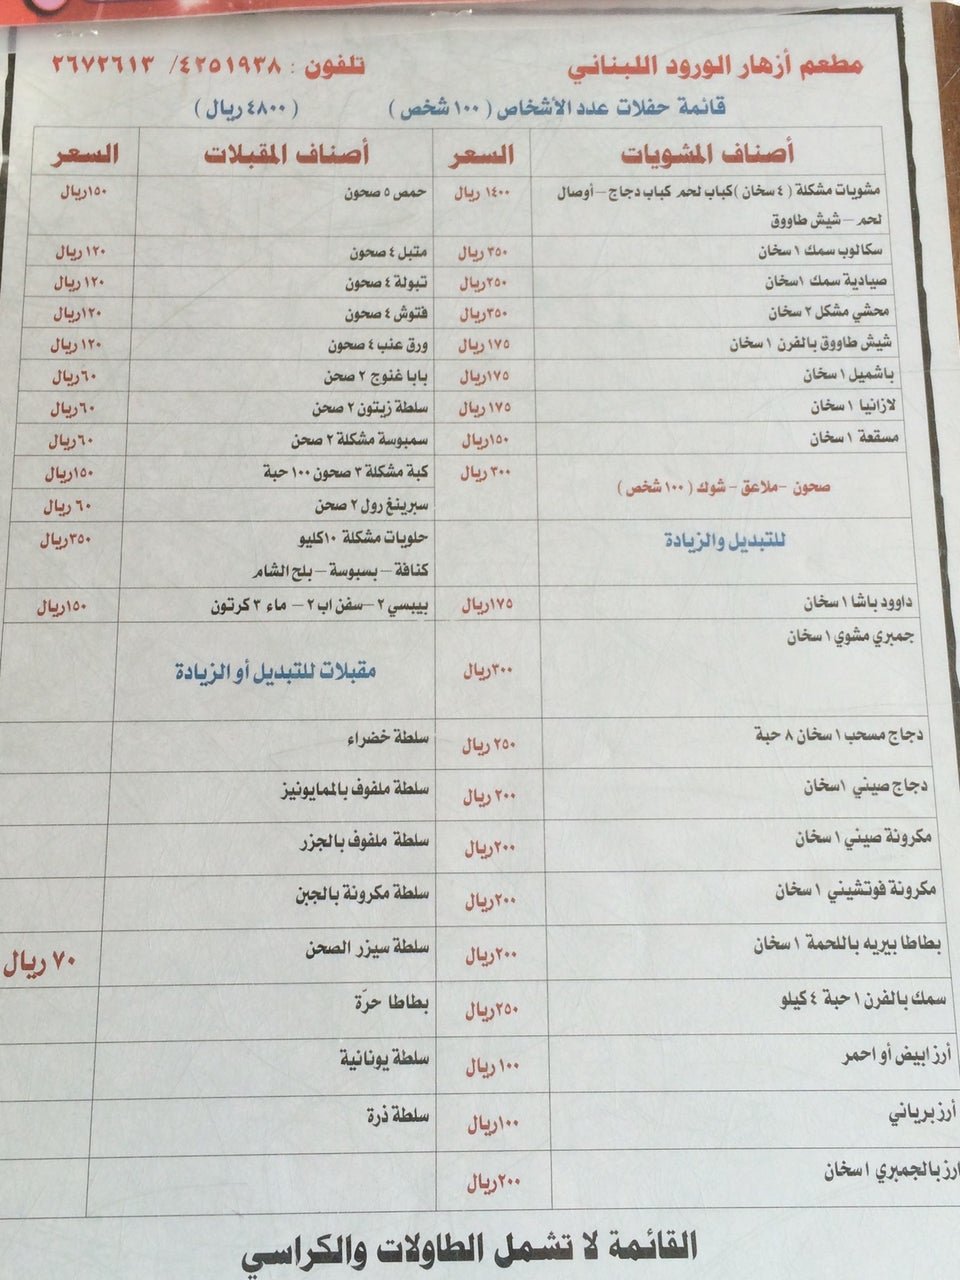 مطعم أزهار الورود اللبناني تلفون : ٤٢٥١٩٣٨/ ٢٦٧٢٦١٣
قائمة حفلات عدد الأشخاص ( ١٠٠ شخص ) ( ٤٨٠٠ ريال )
أصناف المشويات السعر أصناف المقبلات السعر
مشويات مشكلة ( ٤ سخان )كباب لحم كباب دجاج – أوصال ١٤٠٠ ريال حمص ٥ صحون ١٥٠ريال
لحم – شيش طاووق
سكالوب سمك ١ سخان ٣٥٠ ريال متبل ٤ صحون ١٢٠ريال
صيادية سمك ١سخان ٢٥٠ريال تبولة ٤ صحون ١٢٠ريال
محشي مشكل ٢ سخان ٣٥٠ريال فتوش ٤ صحون ١٢٠ريال
شيش طاووق بالفرن ١ سخان ١٧٥ ريال ورق عنب ٤ صحون ١٢٠ ريال
باشميل ١ سخان ١٧٥ريال بابا غنوج ٢ صحن ٦٠ ريال
لازانيا ١ سخان ١٧٥ ريال سلطة زيتون ٢ صحن ٦٠ريال
مسقعة ١ سخان ١٥٠ريال سمبوسة مشكلة ٢ صحن ٦٠ ريال
صحون -ملاعق - شوك ( ١٠٠ شخص ) ٣٠٠ ريال كبة مشكلة ٣ صحون ١٠٠ حبة ١٥٠ريال
سبرينغ رول ٢ صحن ٦٠ ريال
للتبديل والزيادة حلويات مشكلة ١٠كليو ٣٥٠ريال
كنافة – بسبوسة – بلح الشام
داوود باشا ١ سخان ١٧٥ريال بيبسي ٢ –سفن اب ٢ – ماء ٣ كرتون ١٥٠ريال
جمبري مشوي ١ سخان ٣٠٠ريال مقبلات للتبديل أو الزيادة
دجاج مسحب ١ سخان ٨ حبة ٢٥٠ ريال سلطة خضراء
دجاج صيني ١سخان ٢٠٠ ريال سلطة ملفوف بالمايونيز
مكرونة صيني ١ سخان ٢٠٠ريال سلطة ملفوف بالجزر
مكرونة فوتشيني ١ سخان ٢٠٠ريال سلطة مكرونة بالجبن
بطاطا بيريه باللحمة ١ سخان ٢٠٠ريال سلطة سيزر الصحن ٧٠ ريال
سمك بالفرن ١ حبة ٤ كيلو ٢٥٠ريال بطاطا حرّة
أرز ابيض أو احمر ١٠٠ ريال سلطة يونانية
أرز برياني ١٠٠ريال سلطة ذرة
ارز بالجمبري ١ سخان ٢٠٠ريال
القائمة لا تشمل الطاولات والكراسي